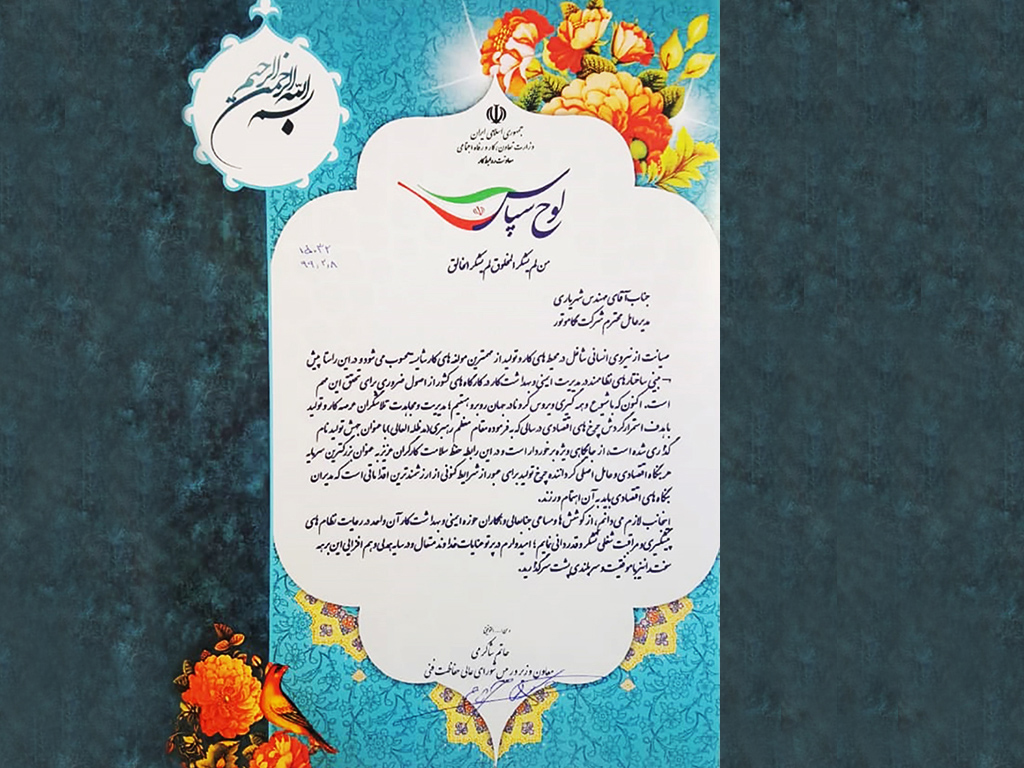 بسم الله الرحمن الرحیم
جمهوری اسلامی ایران
وزارت تعاون، کار و رفاه اجتماعی
معاونت روابط کار
لوح سپاس
۱۵۰۳۲
۹۹,۲,۸
من لم یشکر المخلوق لم یشکر الخالق
جناب آقای مهندس شهریاری
مدیرعامل محترم شرکت مگاموتور
صیانت از نیروی انسانی شاغل در محیط های کار و تولید از مهمترین مولفه های کار شایسته محسوب می شود و در این راستا پیش
بینی ساختارهای نظامند در مدیریت ایمنی و بهداشت کار در کارگاه های کشور از اصول ضروری برای تحقق این مهم
است. اکنون که با شیوع و همه گیری ویروس کرونا در جهان روبرو هستیم؛ مدیریت و مجاهدت تلاشگران عرصه کار و تولید
با هدف استمرار گردش چرخ های اقتصادی در سالی که به فرموده مقام معظم رهبری (مدظله العالی) با عنوان جهش تولید نام
گذاری شده است، از جایگاهی ویژه برخوردار است و در این رابطه حفظ سلامت کارگران عزیز به عنوان بزرگترین سرمایه
هر بنگاه اقتصادی و عامل اصلی گرداننده چرخ تولید برای عبور از شرایط کنونی از ارزشمندترین اقداماتی است که مدیران
بنگاه های اقتصادی باید به آن اهتمام ورزند.
اینجانب لازم می دانم، از کوشش ها و مساعی جنابعالی و همکاران حوزه ایمنی و بهداشت کار آن واحد در رعایت نظام های
پیشگیری و مراقبت شغلی تشکر و قدردانی نمایم؛ امیدوارم در پرتو عنایات خداوند متعال و در سایه همدلی و هم افزایی این برهه
سخت را نیز با موفقیت و سربلندی پشت سر گذارید.
حاتم شاکرمی
معاون وزیر و رییس شورای عالی حفاظت فنی